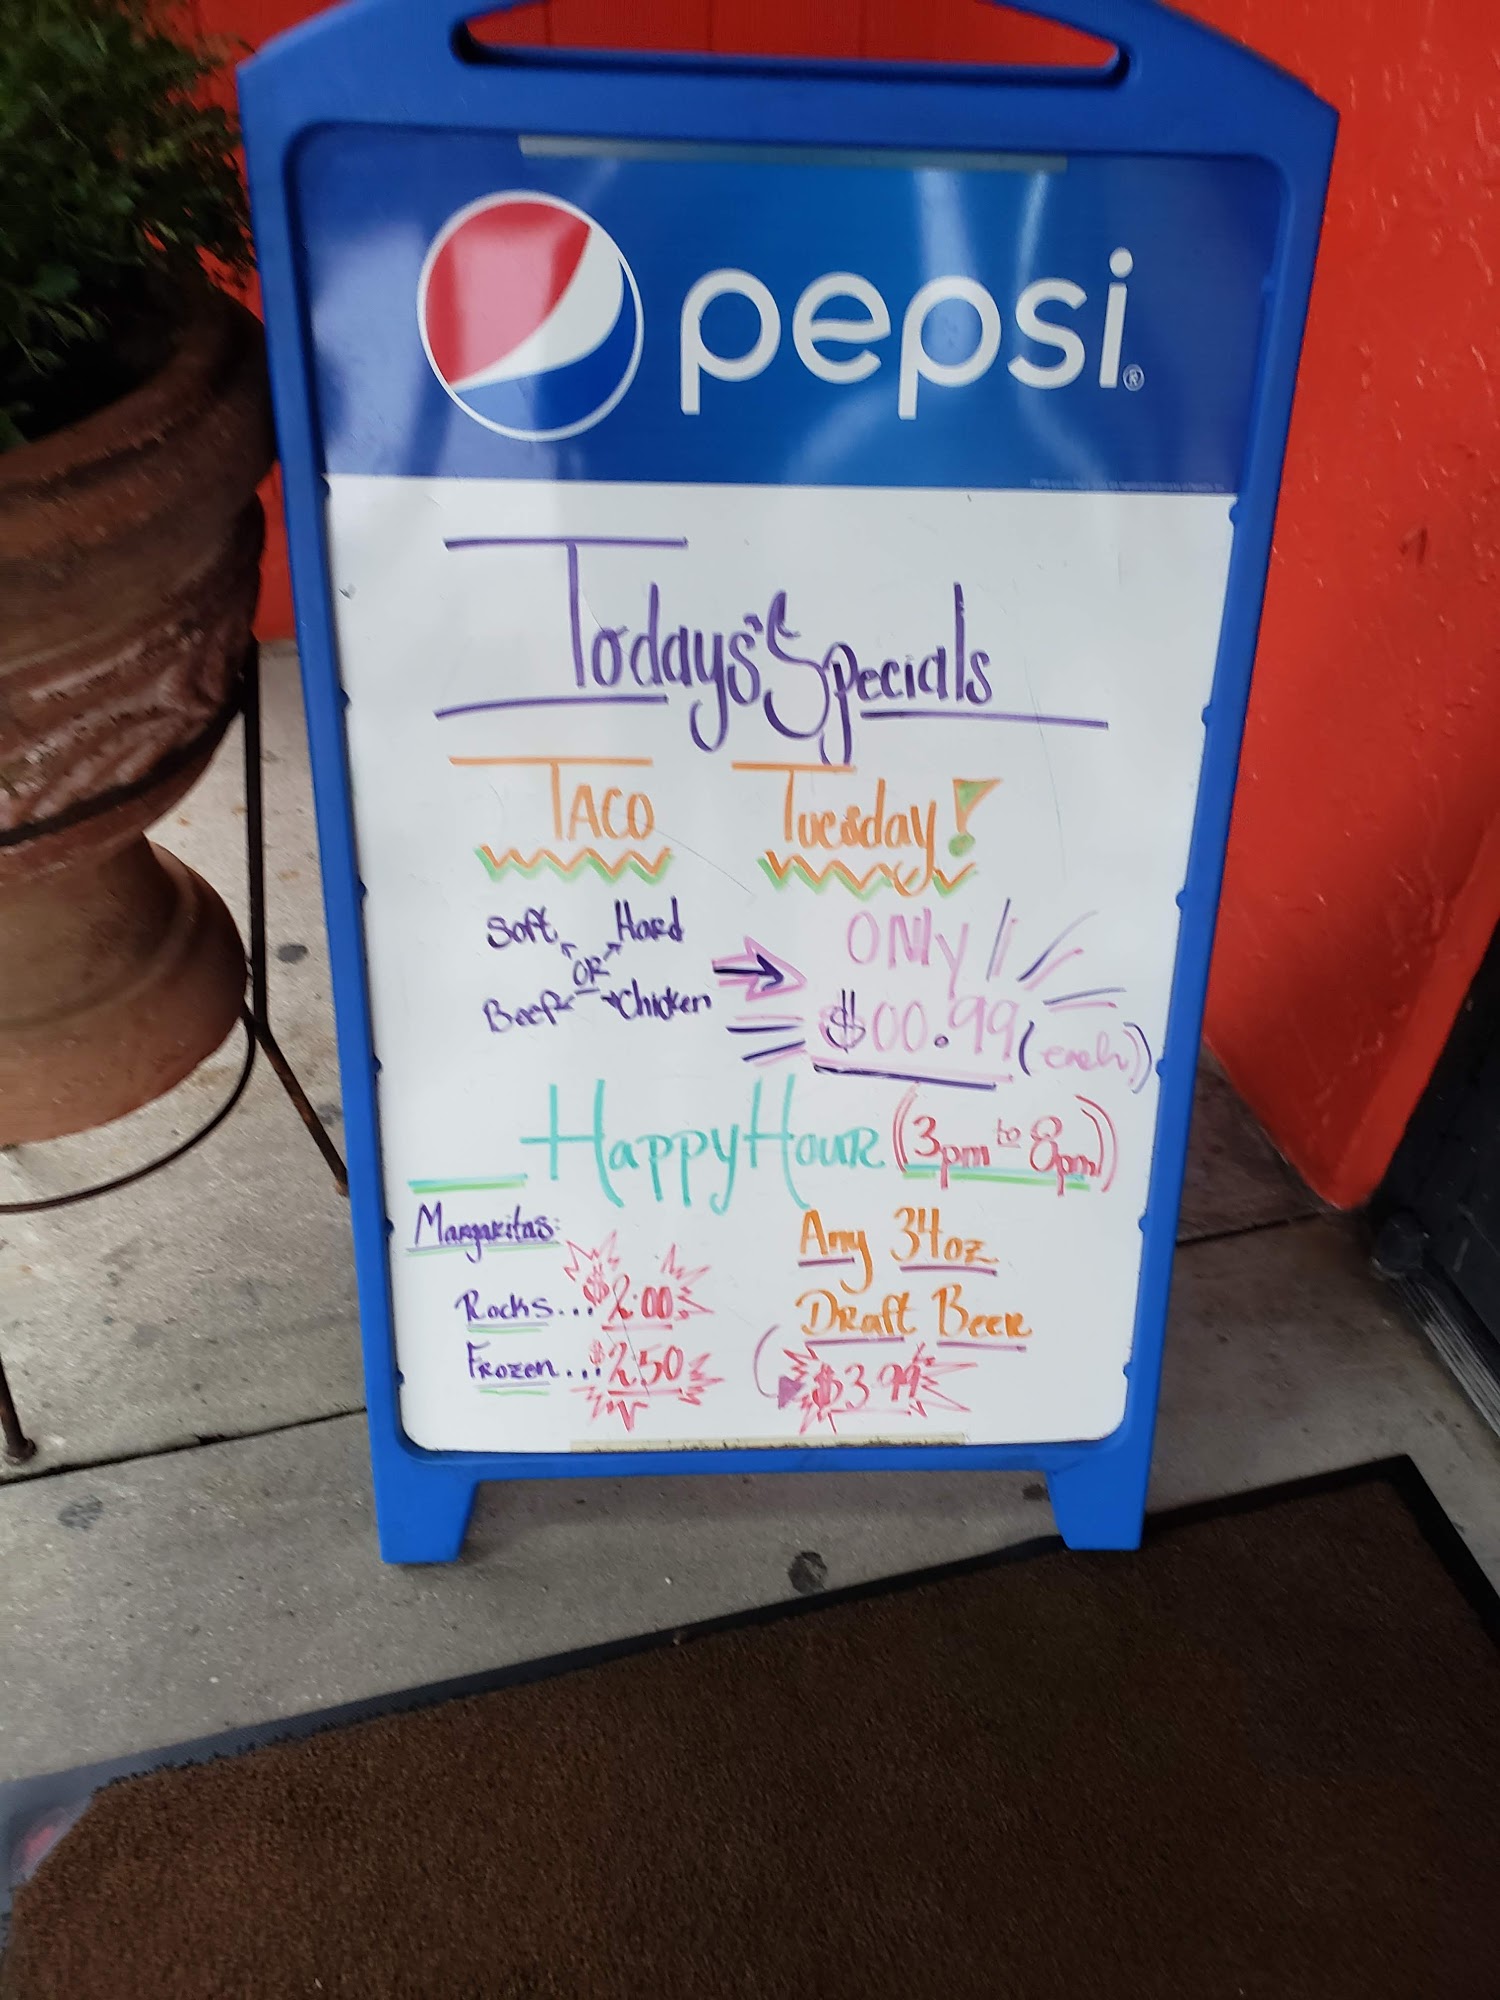 pepsi®
Todays' Specials
TACO Tuesday!
Soft Hard
OR
Beef Chicken
ONly
$00.99 (each)
Happy Hour (3pm to 8pm)
Margaritas:
Rocks... $2.00
Frozen... $2.50
Any 34oz
Draft Beer
$3.99